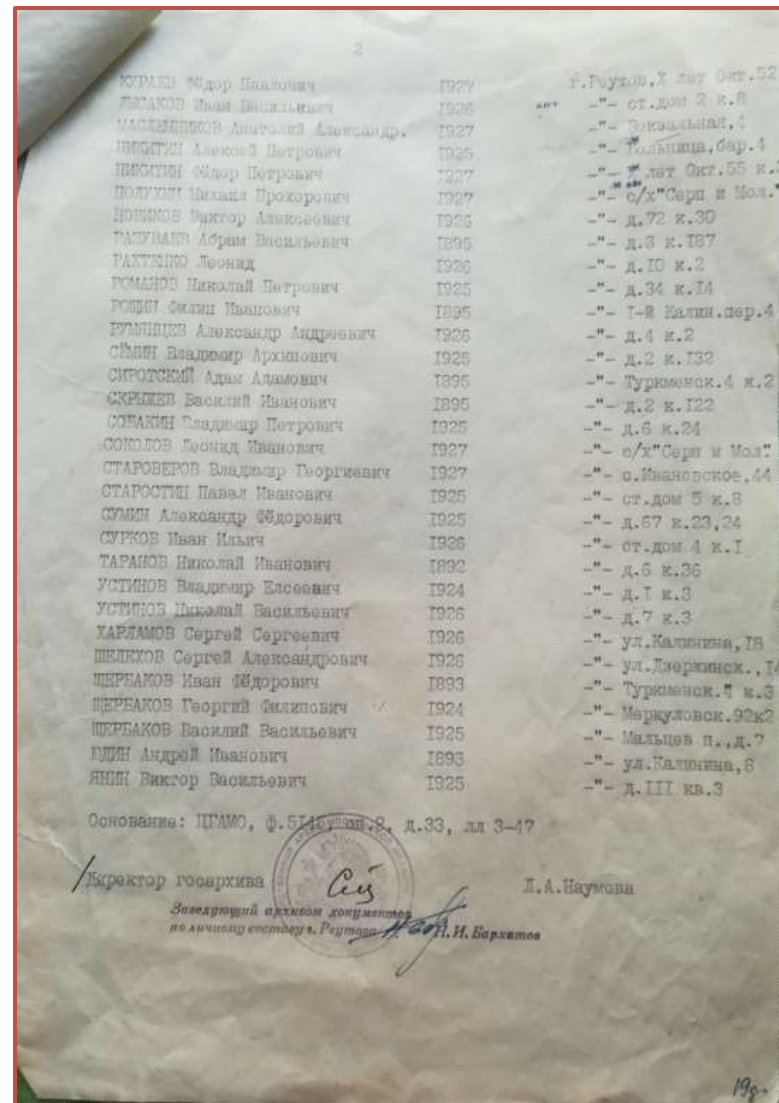 2
КУРАЕВ Фёдор Павлович 1927 г.Реутов,Х лет Окт.52
ЛЫСАКОВ Иван Васильевич 1926 -"- ст.дом 2 к.8
МАСЛЕННИКОВ Анатолий Александр. 1927 -"- Вокзальная,4
НИКИТИН Алексей Петрович 1925 -"- Больница,бар.4
НИКИТИН Фёдор Петрович 1927 -"- лет Окт.55 к.
ПОЛУХИН Михаил Прохорович 1927 -"- с/х"Серп и Мол."
НОВИКОВ Виктор Алексеевич 1926 -"- д.72 к.30
РАЗУВАЕВ Абрам Васильевич 1895 -"- д.3 к.I87
РАХТЕНКО Леонид 1926 -"- д.I0 к.2
РОМАНОВ Николай Петрович 1925 -"- д.34 к.I4
РОЩИН Филип Иванович 1895 -"- I-й Калин.пер.4
РУМЯНЦЕВ Александр Андреевич 1926 -"- д.4 к.2
СЁМИН Владимир Архипович 1925 -"- д.2 к.I32
СИРОТСКИЙ Адам Адамович 1895 -"- Туркменск.4 к.2
СКРЫЖЕВ Василий Иванович 1895 -"- д.2 к.I22
СОБАКИН Владимир Петрович 1925 -"- д.6 к.24
СОКОЛОВ Леонид Иванович 1927 -"- с/х"Серп и Мол"
СТАРОВЕРОВ Владимир Георгиевич 1927 -"- с.Ивановское,44
СТАРОСТИН Павел Иванович 1925 -"- ст.дом 5 к.8
СУМИН Александр Фёдорович 1925 -"- д.67 к.23,24
СУРКОВ Иван Ильич 1926 -"- ст.дом 4 к.I
ТАРАНОВ Николай Иванович 1892 -"- д.6 к.36
УСТИНОВ Владимир Елсеевич 1924 -"- д.I к.3
УСТИНОВ Николай Васильевич 1926 -"- д.7 к.3
ХАРЛАМОВ Сергей Сергеевич 1926 -"- ул.Калинина,I8
ШЕЛЕХОВ Сергей Александрович 1926 -"- ул.Дзержинск.,I4
ЩЕРБАКОВ Иван Фёдорович 1893 -"- Туркменск. к.3
ЩЕРБАКОВ Георгий Филипович 1924 -"- Меркуловск.92к2
ЩЕРБАКОВ Василий Васильевич 1925 -"- Мальцев п.,д.7
ЮДИН Андрей Иванович 1893 -"- ул.Калинина,8
ЯНИН Виктор Васильевич 1925 -"- д.III кв.3
Основание: ЦГАМО, ф.5I45, оп.2, д.33, лл 3-47
Директор госархива Л.А.Наумова
Заведующий архивом документов
по личному составу г. Реутова Н. И. Бархатов